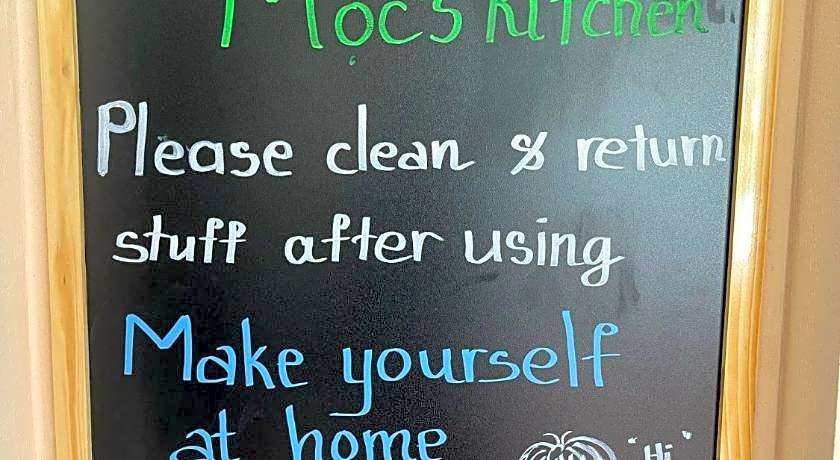 Mộc's Kitchen
Please clean & return
stuff after using
Make yourself
at home
"Hi"